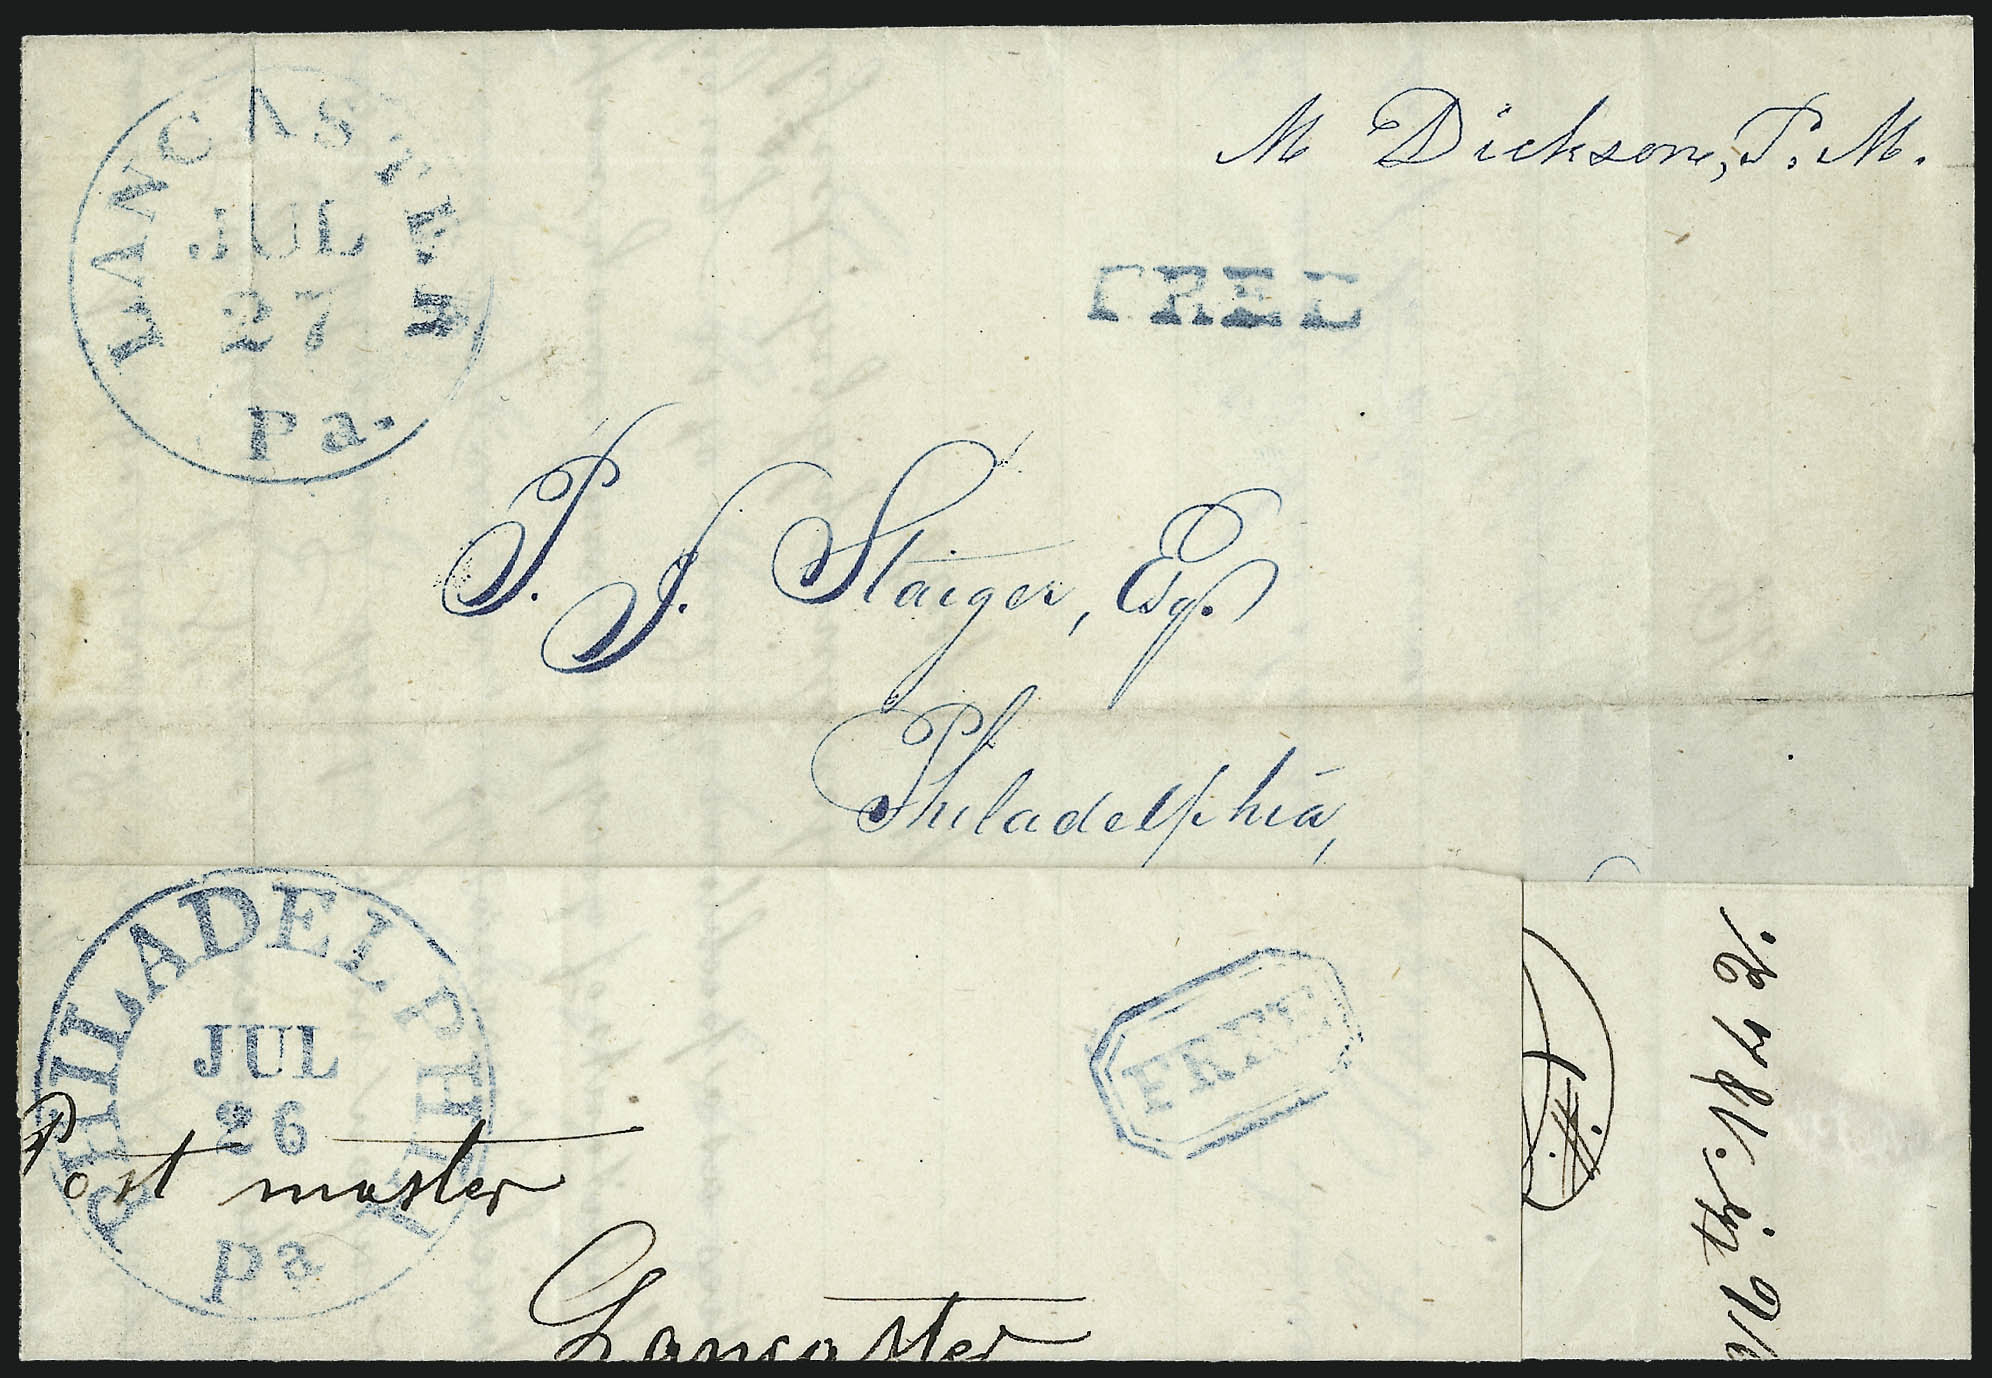 LANCASTER
JUL
27
Pa.
M Dickson, P. M.
FREE
P. J. Staiger, Esq.
Philadelphia,
PHILADELPHIA
JUL
26
Pa
FREE
Post master
Lancaster